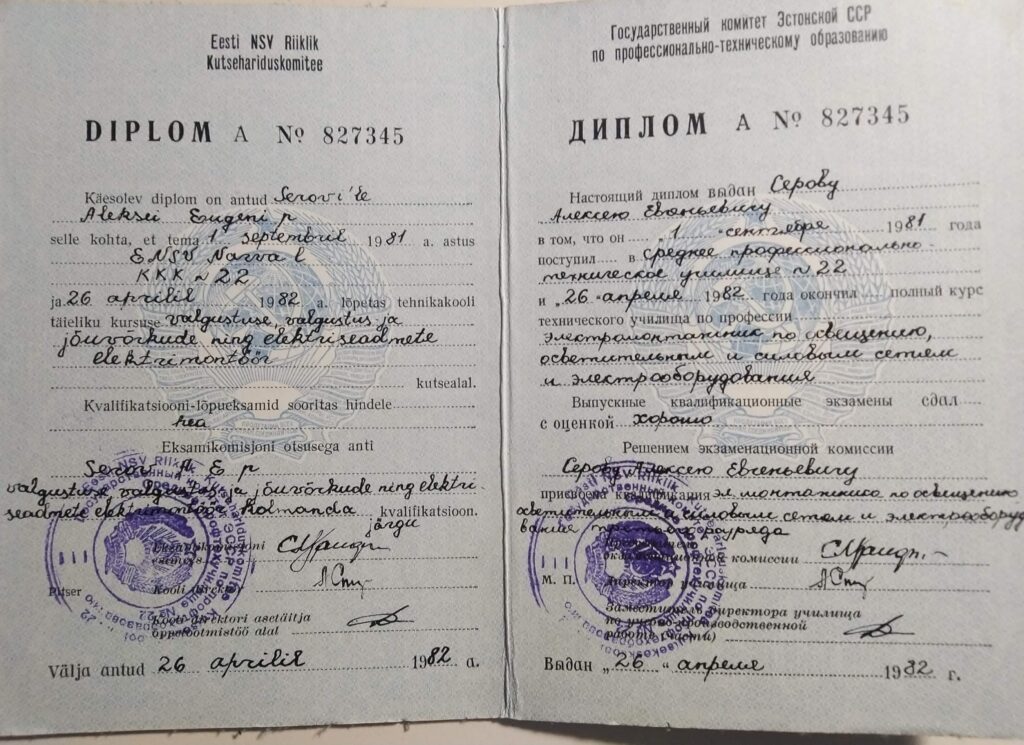 Eesti NSV Riiklik
Kutsehariduskomitee
DIPLOM A № 827345
Käesolev diplom on antud Serov'ile
Aleksei Eugeni p
selle kohta, et tema 1. septembril 1981 a. astus
ENSV Narva l
KKK N 22
ja 26 aprilil 1982 a. lõpetas tehnikakooli
täieliku kursuse valgustuse, valgustus ja
jõuvõrkude ning elektriseadmete
elektrimontöör
kutsealal.
Kvalifikatsiooni-lõpueksamid sooritas hindele
hea
Eksamikomisjoni otsusega anti
Serov A E p
valgustuse valgustus ja jõuvõrkude ning elektri-
seadmete elektrimontöör kolmanda kvalifikatsioon.
järgu
Eksamikomisjoni
Pitser
Kooli direktor
Kooli direktori asetäitja
õppetootmistöö alal
Välja antud 26 aprilil 1982 a.
Государственный комитет Эстонской ССР
по профессионально-техническому образованию
ДИПЛОМ А № 827345
Настоящий диплом выдан Серову
Алексею Евгеньевичу
в том, что он „1 " сентября 1981 года
поступил в среднее профессионально-
техническое училище N 22
и „26 " апреля 1982 года окончил полный курс
технического училища по профессии
электромонтажник по освещению,
осветительным и силовым сетям
и электрооборудования
Выпускные квалификационные экзамены сдал
с оценкой хорошо
Решением экзаменационной комиссии
Серову Алексею Евгеньевичу
присвоена квалификация эл. монтажника по освещению
осветительным и силовым сетям и электрооборудо
вания третьего разряда
Председатель
экзаменационной комиссии
М. П.
Директор училища
Заместитель директора училища
по учебно-производственной
работе (части)
Выдан „26 " апреля 1982 г.